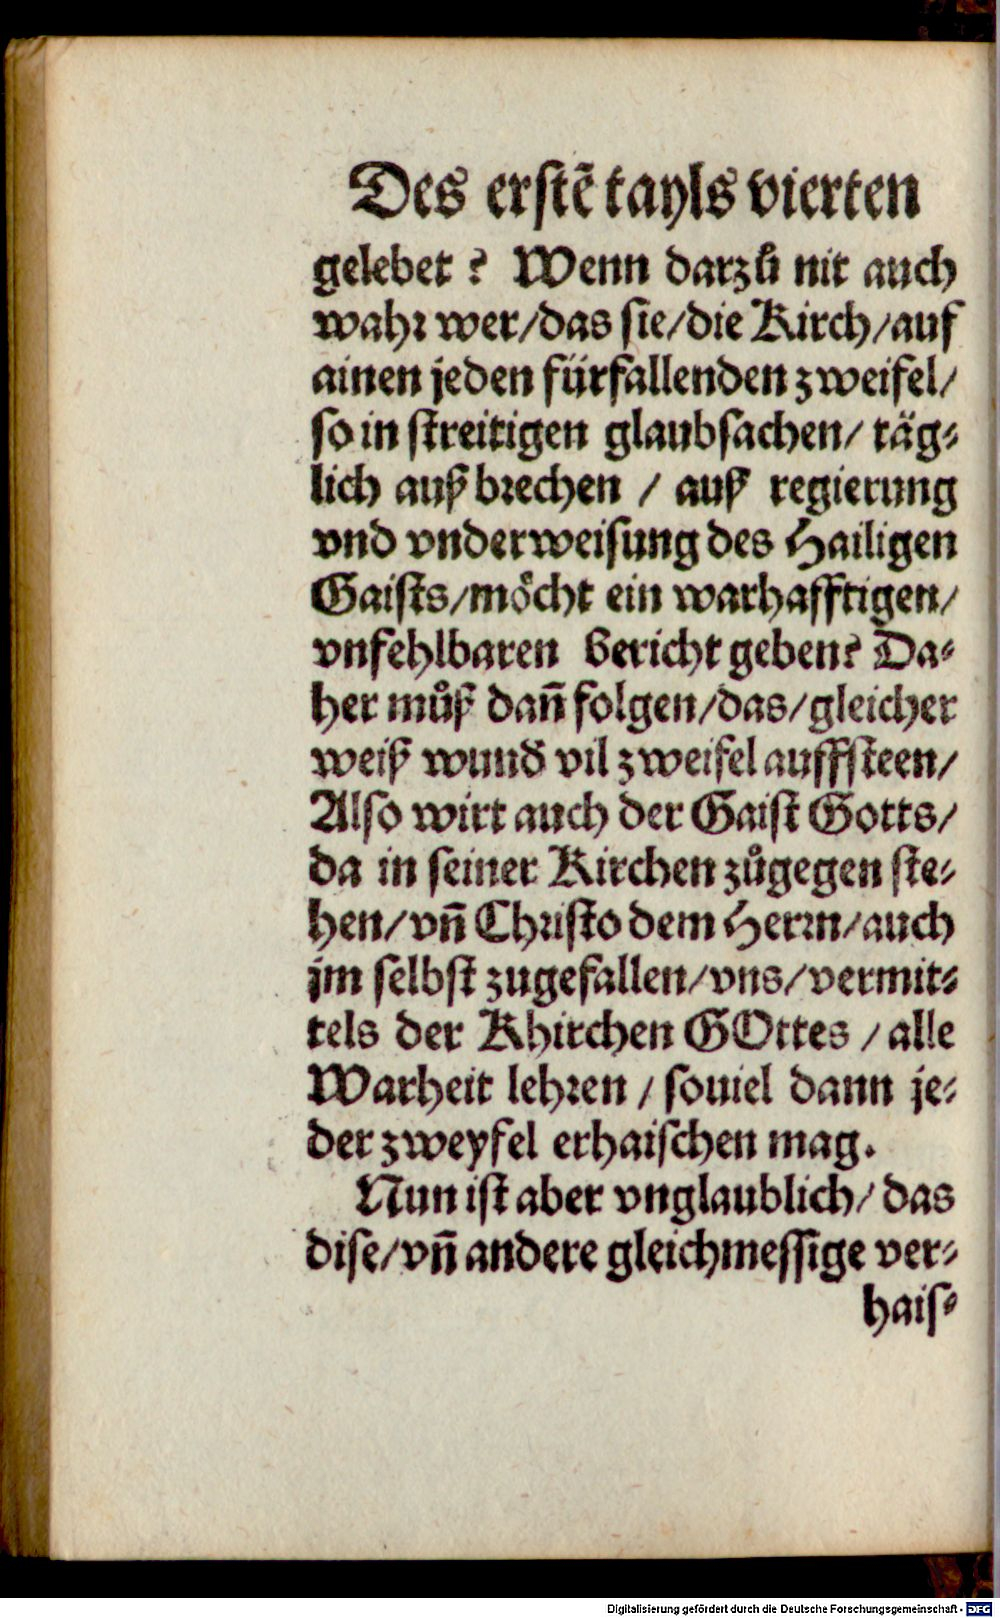 Des erstē tayls vierten
gelebet? Wenn darzů nit auch
wahr wer/das sie/die Kirch/auf
ainen jeden fürfallenden zweifel/
so in streitigen glaubsachen/ täg-
lich auß brechen / auß regierung
vnd vnderweisung des Hailigen
Gaists/möcht ein warhafftigen/
vnfehlbaren bericht geben? Da-
her můß dañ folgen/das/gleicher
weiß wund vil zweifel auffsteen/
Also wirt auch der Gaist Gotts/
da in seiner Kirchen zůgegen ste-
hen/vñ Christo dem Herrn/auch
jm selbst zugefallen/vns/vermit-
tels der Khirchen GOttes / alle
Warheit lehren / souiel dann je-
der zweyfel erhaischen mag.
Nun ist aber vnglaublich/ das
dise/vñ andere gleichmessige ver-
hais-
Digitalisierung gefördert durch die Deutsche Forschungsgemeinschaft - DFG